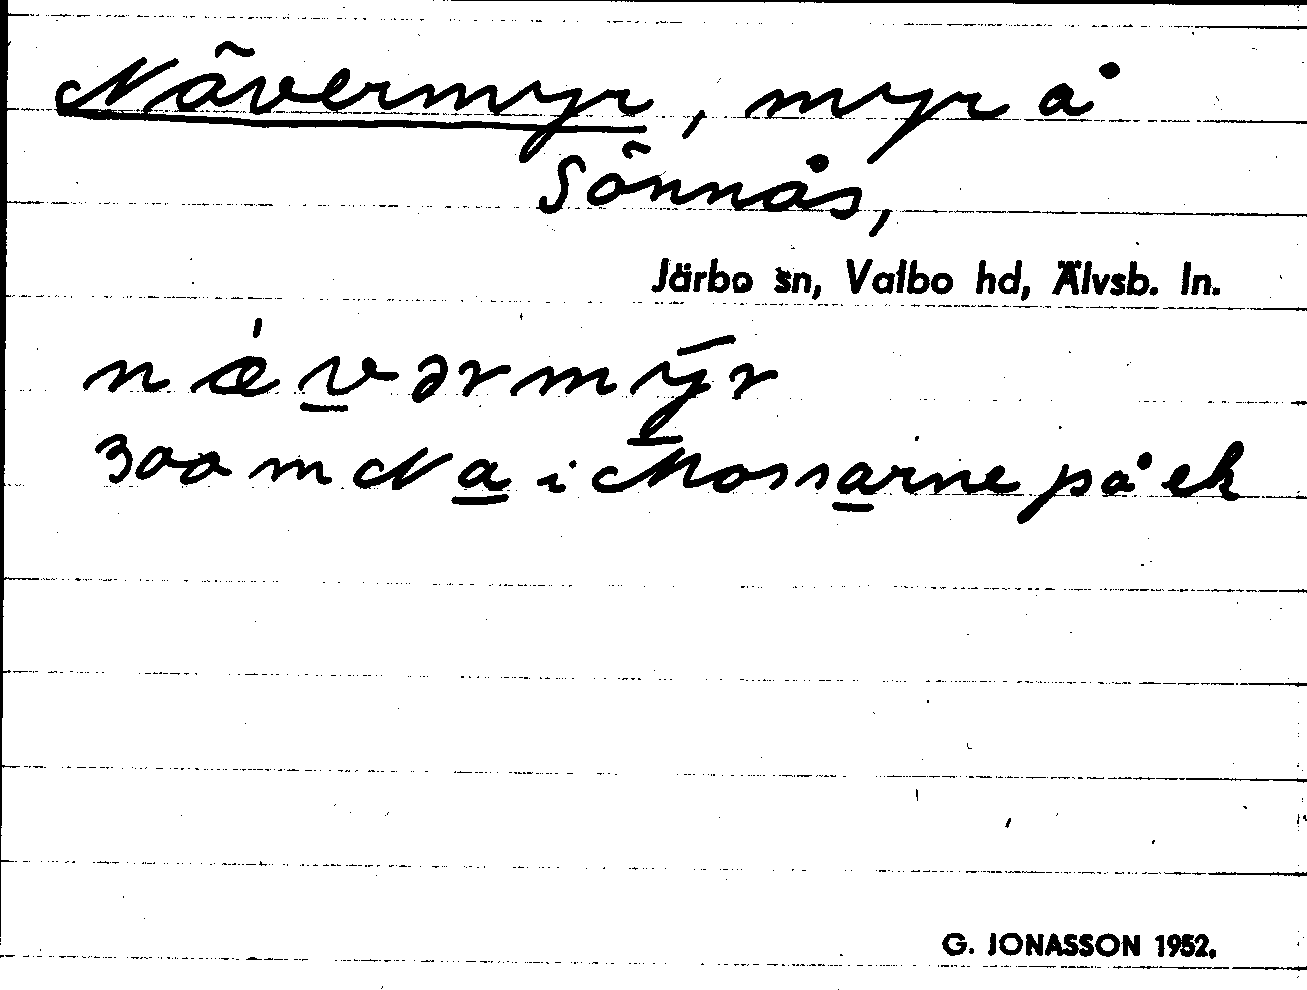 Nävermyr, myr å
Sönnås,
Järbo sn, Valbo hd, Älvsb. ln.
nǽvərmȳr
300 m N a i Mossarne på ek
G. JONASSON 1952.